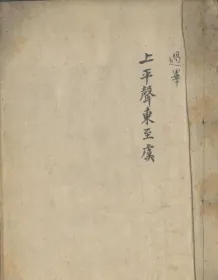 過筆
上平聲東至虞